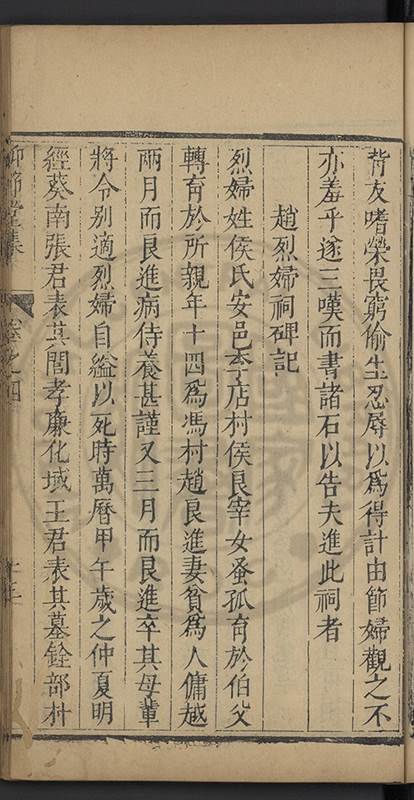 背友嗜榮畏窮偷生忍辱以爲得計由節婦觀之不
亦羞乎遂三嘆而書諸石以告夫進此祠者
趙烈婦祠碑記
烈婦姓侯氏安邑李店村侯良宰女蚤孤育於伯父
轉育於所親年十四爲馮村趙良進妻貧爲人傭越
兩月而良進病侍養甚謹又三月而良進卒其母輩
將令別適烈婦自縊以死時萬曆甲午歲之仲夏明
經葵南張君表其閭孝廉化域王君表其墓銓部村
仰節堂集
卷之四